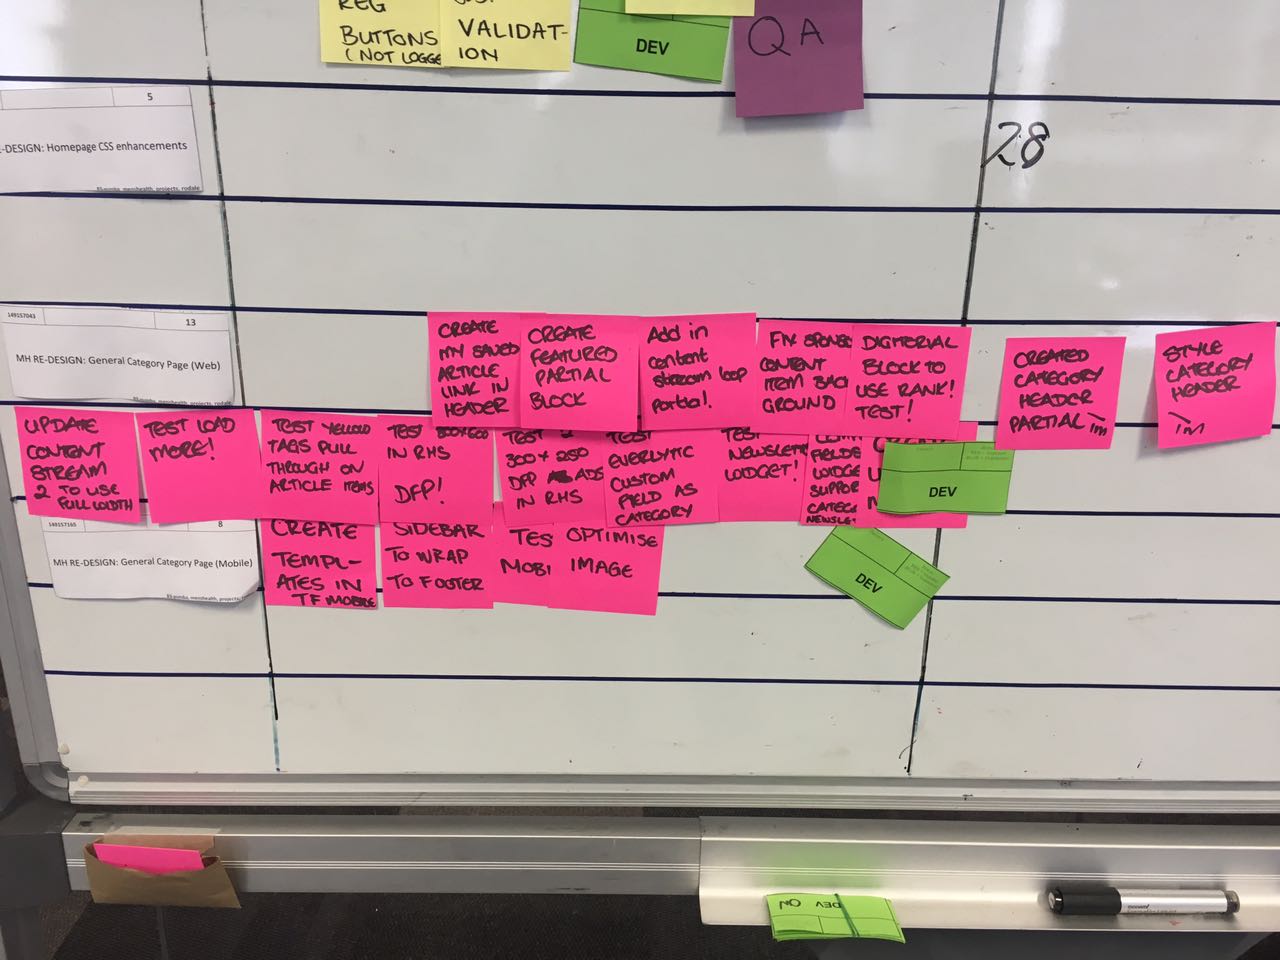 REG
BUTTONS
(NOT LOGGE
VALIDAT-
ION
DEV
QA
5
E-DESIGN: Homepage CSS enhancements
menshealth, projects, rodale
28
149157043
13
MH RE-DESIGN: General Category Page (Web)
CREATE
MY SAVED
ARTICLE
LINK IN
HEADER
CREATE
FEATURED
PARTIAL
BLOCK
Add in
content
stream loop
partial!
FIX SPONS
CONTENT
ITEM BACK
GROUND
DIGITORIAL
BLOCK TO
USE RANK!
TEST!
CREATED
CATEGORY
HEADER
PARTIAL
STYLE
CATEGORY
HEADER
UPDATE
CONTENT
STREAM
2 TO USE
FULL WIDTH
TEST LOAD
MORE!
TEST YELLOW
TAGS PULL
THROUGH ON
ARTICLE ITEMS
TEST 300x600
IN RHS
DFP!
TEST 2
300 x 250
DFP ADS
IN RHS
TEST
EVERLYTIC
CUSTOM
FIELD AS
CATEGORY
TEST
NEWSLETTE
WIDGET!
FIELDS
WIDGE
SUPPOR
CATEG
NEWSLE
DEV
149157165
8
MH RE-DESIGN: General Category Page (Mobile)
menshealth, projects,
CREATE
TEMPL-
ATES IN
TF MOBILE
SIDEBAR
TO WRAP
TO FOOTER
TES
MOBI
OPTIMISE
IMAGE
DEV
DEV ON